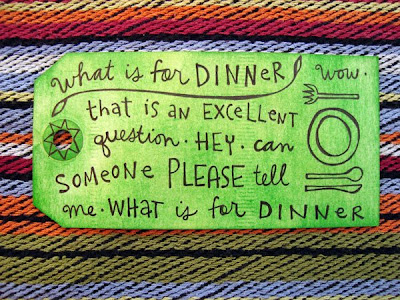 what is for DINNER wow.
that is an EXCELLENT
question. HEY. can
SOMEONE PLEASE tell
me. WHAT is for DINNER